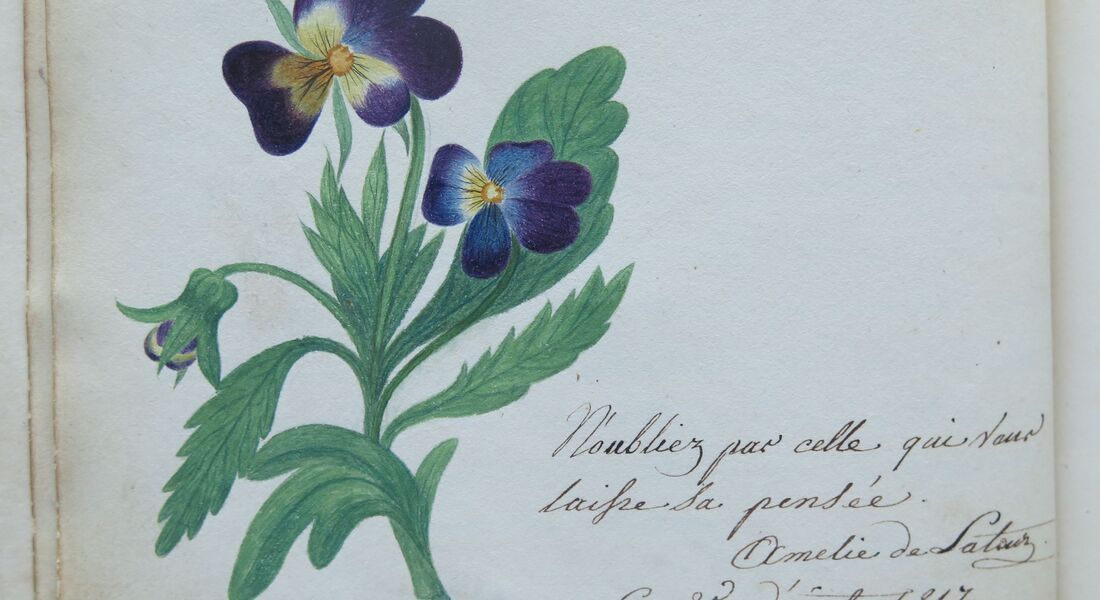 N'oubliez pas celle qui vous
laisse sa pensée.
Amelie de Latour